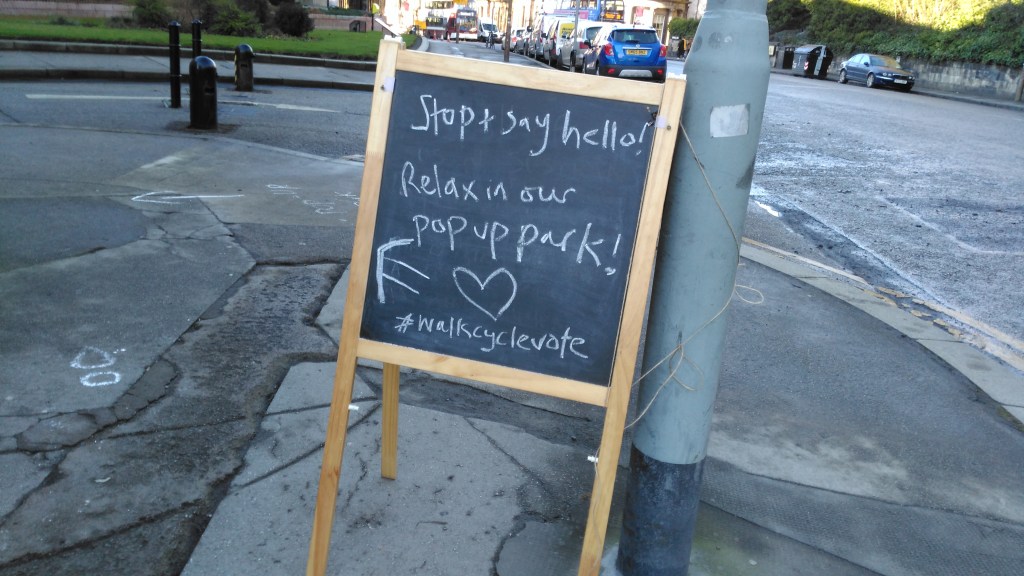 Stop + say hello!
Relax in our
pop up park!
#walkcyclevote